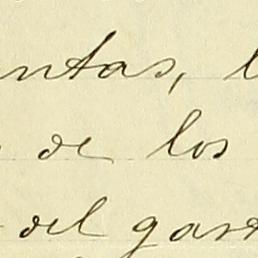 ntas, l
de los
del gast